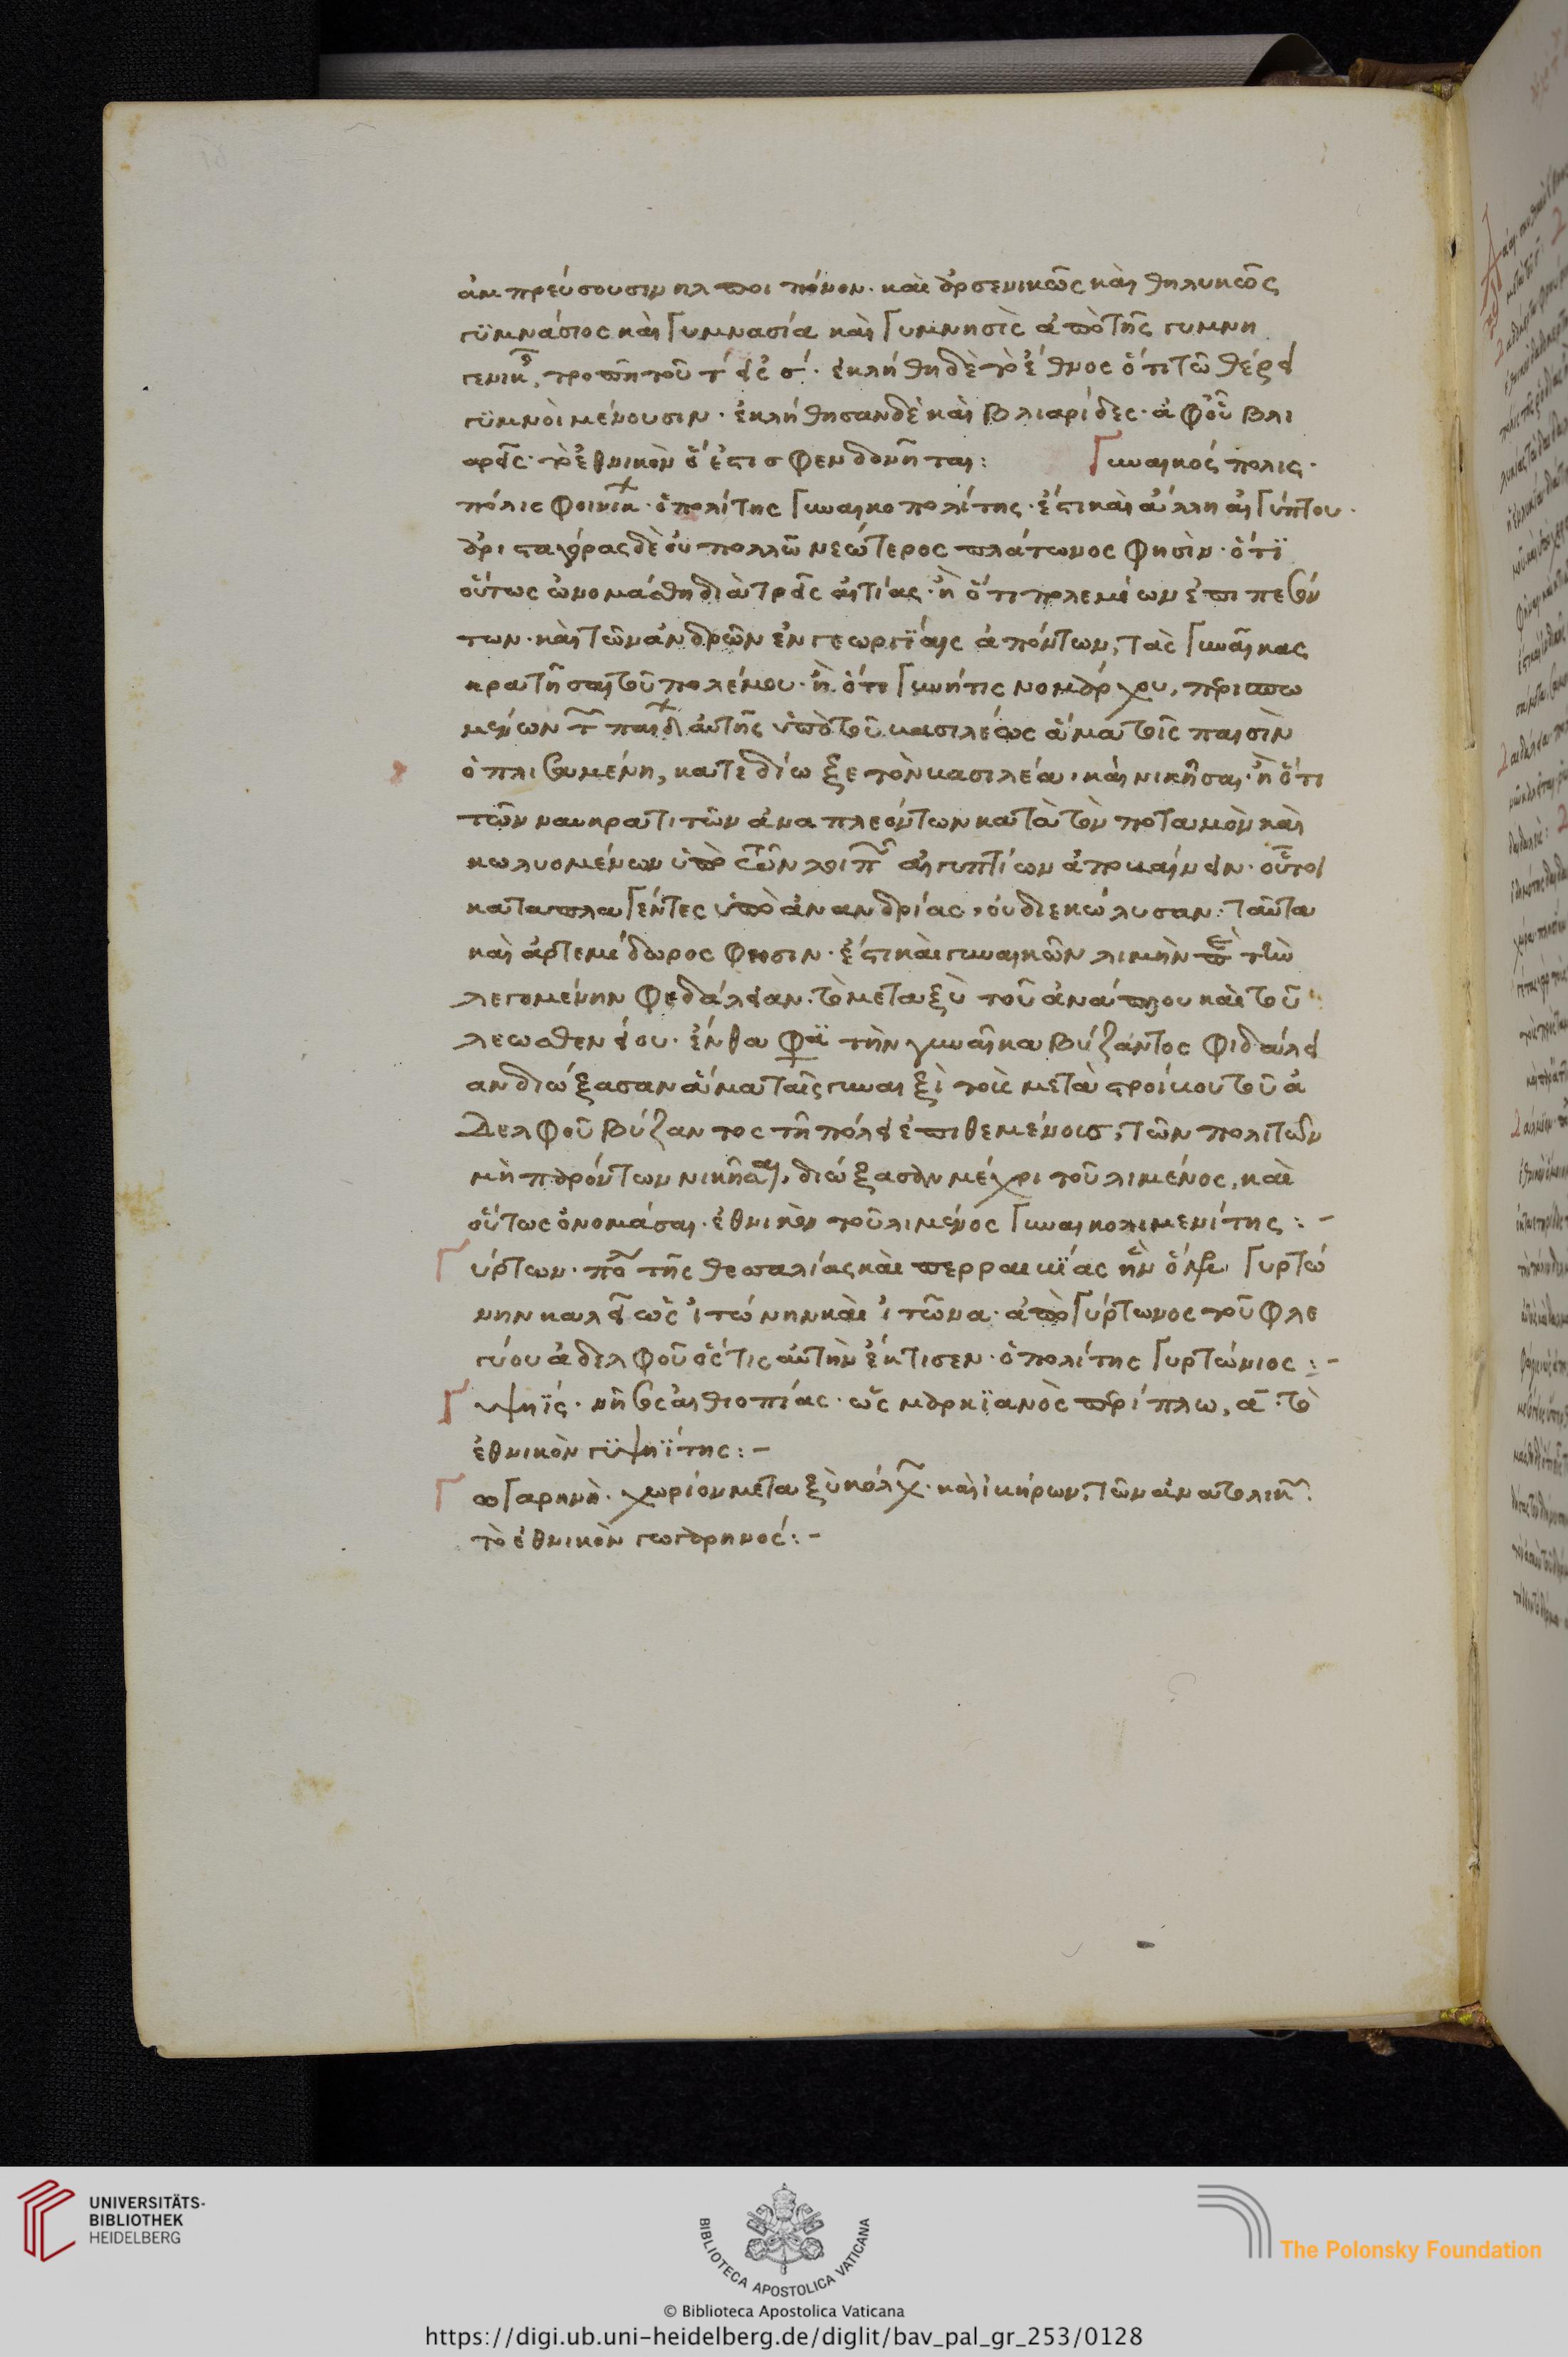 ἀμπρεύσουσιν ηλιποι πόνον· καὶ ἀρσενικῶς καὶ θηλυκῶς
γϋμνάσιος καὶ Γυμνασία καὶ Γυμνησὶς ἀπὸ τῆς γυμνη
γενικῆς, τροπῆ τοῦ τ εἰς σ· ἐκλήθη δὲ τὸ ἔθνος ὅτι τῶ θέρει
γϋμνοὶ μένουσιν· ἐκλήθησαν δὲ καὶ Βλιαρίδες· ἀφοῦ βλι
αρεῖς· τὸ ἐθνικὸν ὅ ἐστι σφενδονῆται: Γυναικόσπολις·
πόλις φοινίκ· ὁ πολίτης Γυναικοπολίτης· ἔστι καὶ ἄλλη αἰΓύπτου·
ἀρισταγόρας δὲ οὐ πολλῶ νεώτερος πλάτωνος φησὶν· ὅτϊ
οὕτως ὠνομάσθη διὰ τρεῖς αἰτίας· ἢ ὅτι πολεμίων ἐπιπεσόν
των· καὶ τῶν ἀνδρῶν ἐν γεωργϊαις ἀπόντων, τὰς Γυναῖκας
κρατῆσαι τοῦ πολέμου· ἢ ὅτι Γυνήτις νομάρχου, περισπω
μένων τ παιδ αὐτῆς ὑπὸ τοῦ βασιλέως ἅμα τοῖς παισὶν
ὁπλισαμένη, κατεδίωξε τὸν βασιλέα, καὶ νικῆσαι· ἢ ὅτι
τῶν ναυκρατιτῶν ἀναπλεόντων κατὰ τὸν ποταμὸν καὶ
κωλυομένων ὑπὸ τῶν λοιπ αἰγυπτίων ἀποβαίνειν· οὗτοι
καταπλαΓέντες ὑπὸ ἀνανδρίας, οὐ διεκώλυσαν· ταῦτα
καὶ ἀρτεμίδωρος φησιν· ἔστι καὶ γυναικῶν λιμὴν τὴν
λεγομένην φεδάλειαν· τὸ μεταξὺ τοῦ ἀνάπλου καὶ τοῦ
λεωσθενείου· ἔνθα φα τὴν γυναῖκα Βύζαντος φιδάλει
αν διώξασαν ἅμα ταῖς γυναιξὶ τοῖς μετὰ στροίβου τοῦ ἀ
Δελφοῦ Βύζαντος τῆ πόλει ἐπιθεμένοισ, τῶν πολιτῶν
μὴ παρόντων νικῆσαι, διώξασαν μέχρι τοῦ λιμένος, καὶ
οὕτως ὀνομάσαι· ἐθνικὸν τοῦ λιμένος Γυναικολιμενίτης:-
Γύρτων· πο τῆς θεσσαλίας καὶ περραιβϊας ἣν Γυρτώ
νην καλεῖ ὡς ἰτώνην καὶ ἰτῶνα· ἀπὸ Γύρτωνος τοῦ φλε
γύου ἀδελφοῦ ὅστις αὐτὴν ἔκτισεν· ὁ πολίτης Γυρτώνιος:-
Γυψηϊς· νῆσος αἰθιοπίας· ὡς μαρκϊανὸς περίπλω, α· τὸ
ἐθνικὸν γϋψηϊτης:-
ΓωΓαρηνὴ· χωρίον μεταξὺ κόλχ· καὶ ἰβήρων, τῶν ἀνατολικ·
τὸ ἐθνικὸν γωγαρηνος:-
UNIVERSITÄTS-
BIBLIOTHEK
HEIDELBERG
BIBLIOTECA APOSTOLICA VATICANA
The Polonsky Foundation
© Biblioteca Apostolica Vaticana
https://digi.ub.uni-heidelberg.de/diglit/bav_pal_gr_253/0128